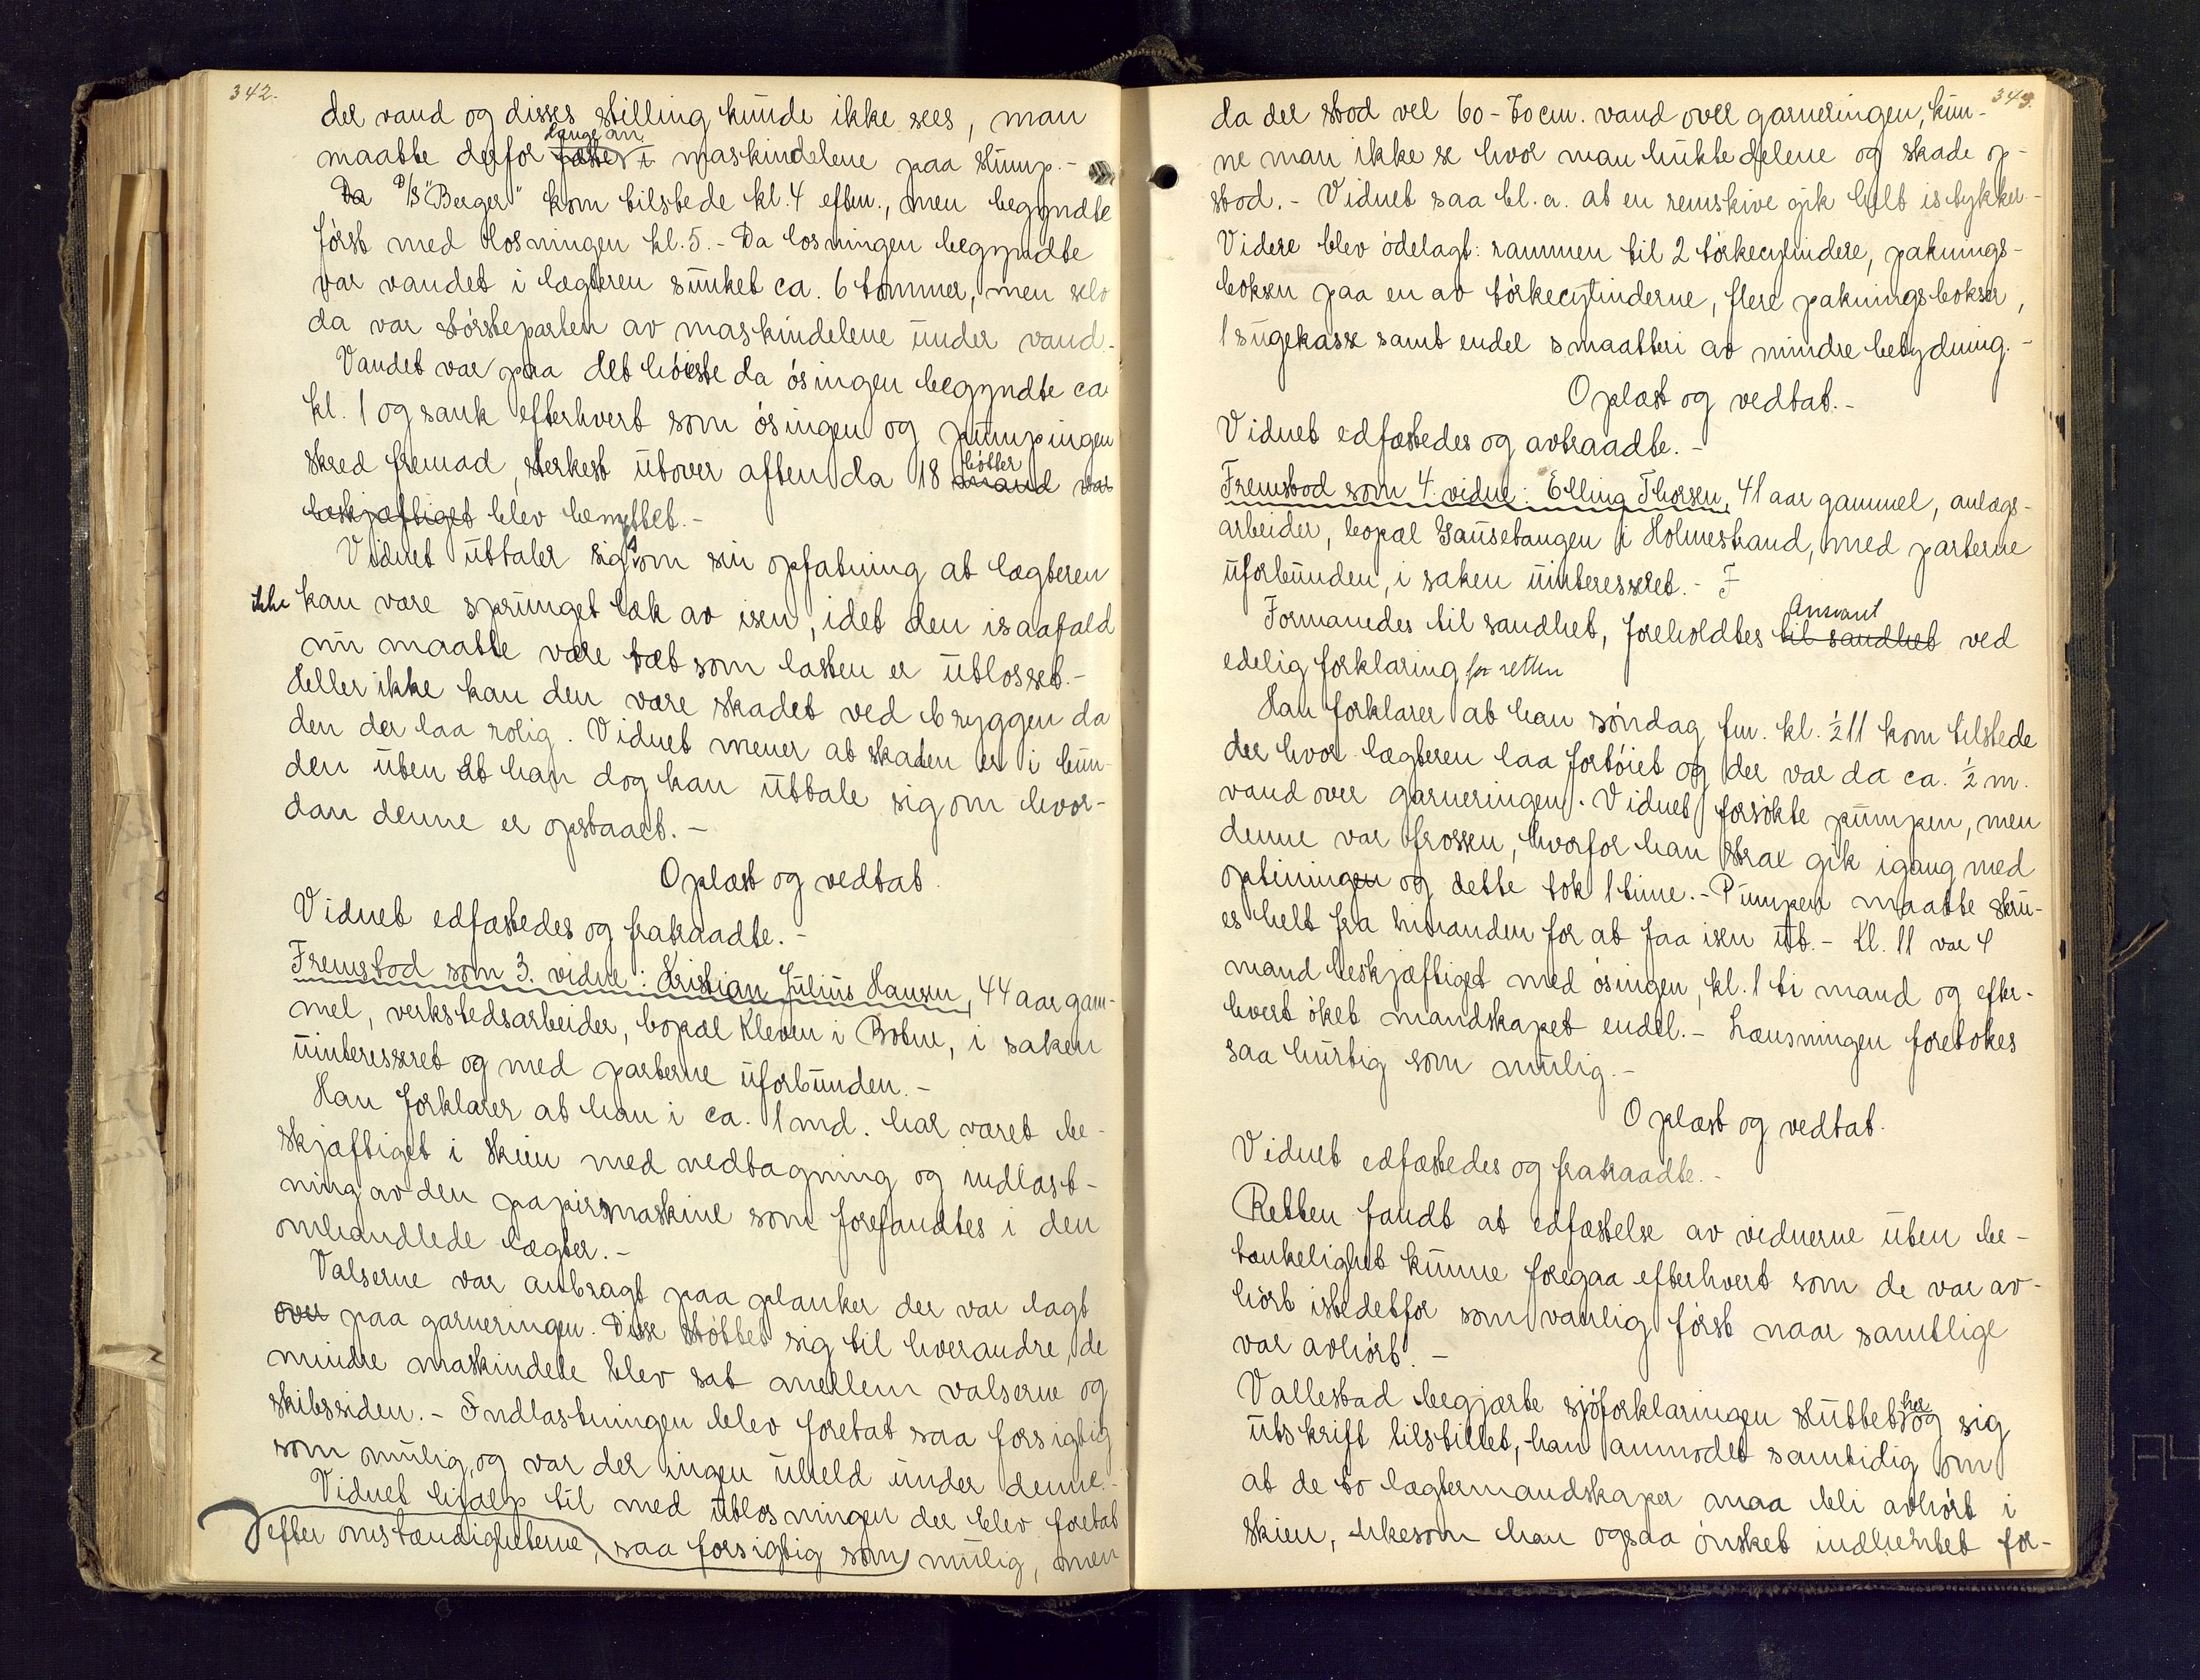 342.
der vand og disses stilling kunde ikke sees, man
lange an
maatte derfor fæste i maskindelene paa slump.-
Da D/S "Berger" kom tilstede kl. 4 eftm., men begyndte
først med losningen kl. 5.- Da losningen begyndte
var vandet i lægteren sunket ca. 6 tommer, men selv
da var størsteparten av maskindelene under vand.-
Vandet var paa det høieste da øsingen begyndte ca
kl. 1 og sank efterhvert som øsingen og pumpingen
bøtter
skred fremad, sterkest utover aften da 18 mand var
beskjæftiget blev benyttet.-
Vidnet uttaler sig som sin opfatning at lægteren
ikke kan være sprunget læk av isen, idet den isaafald
nu maatte være tæt som lasten er utlosset.-
Heller ikke kan den være skadet ved bryggen da
den der laa rolig. Vidnet mener at skaden er i bun-
den uten at han dog kan uttale sig om hvor-
dan denne er opstaaet.-
Oplæst og vedtat.
Vidnet edfæstedes og fratraadte.-
Fremstod som 3. vidne: Kristian Julius Hansen, 44 aar gam-
mel, verkstedsarbeider, bopæl Kleven i Botne, i saken
uinteresseret og med parterne uforbunden.-
Han forklarer at han i ca. 1 md. har været be-
skjæftiget i Skien med nedtagning og indlast-
ning av den papirsmaskine som forefandtes i den
omhandlede lægter.-
Valserne var anbragt paa planker der var lagt
over paa garneringen. Disse støttet sig til hverandre, de
mindre maskindele blev sat mellem valserne og
skibssiden.- Indlastningen blev foretat saa forsigtig
som mulig, og var der ingen uheld under denne.-
Vidnet hjalp til med utlosningen der blev foretat
efter omstændigheterne, saa forsigtig som mulig, men
343.
da der stod vel 60-70 cm. vand over garneringen, kun-
ne man ikke se hvor man hukte delene og skade op-
stod.- Vidnet saa bl. a. at en remskive gik helt istykker.-
Videre blev ødelagt: rammen til 2 tørkecylindere, paknings-
boksen paa en av tørkecylinderne, flere pakningsbokser,
1 sugekasse samt endel smaatteri av mindre betydning.-
Oplæst og vedtat.-
Vidnet edfæstedes og avtraadte.-
Fremstod som 4. vidne: Elling Thorsen, 41 aar gammel, anlægs-
arbeider, bopæl Gausetangen i Holmestrand, med parterne
uforbunden, i saken uinteresseret.- F
Ansvaret
Formanedes til sandhet, foreholdtes til sandhet ved
edelig forklaring for retten
Han forklarer at han søndag fm. kl. ½ 11 kom tilstede
der hvor lægteren laa fortøiet og der var da ca. ½ m.
vand over garneringen. Vidnet forsøkte pumpen, men
denne var frossen, hvorfor han strax gik igang med
optiningen og dette tok 1 time.- Pumpen maatte skru-
es helt fra hinanden for at faa isen ut.- Kl. 11 var 4
mand beskjæftiget med øsingen, kl. 1 ti mand og efter-
hvert øket mandskapet endel.- Lænsningen foretokes
saa hurtig som mulig.-
Oplæst og vedtat.
Vidnet edfæstedes og fratraadte.-
Retten fandt at edfæstelse av vidnerne uten be-
tænkelighet kunne foregaa efterhvert som de var av-
hørt istedetfor som vanlig først naar samtlige
var avhørt.-
her
Vallestad begjærte sjøforklaringen sluttet og sig
utskrift tilstillet, han anmodet samtidig om
at de to lægtermandskaper maa bli avhørt i
Skien, likesom han ogsaa ønsket indhentet for-